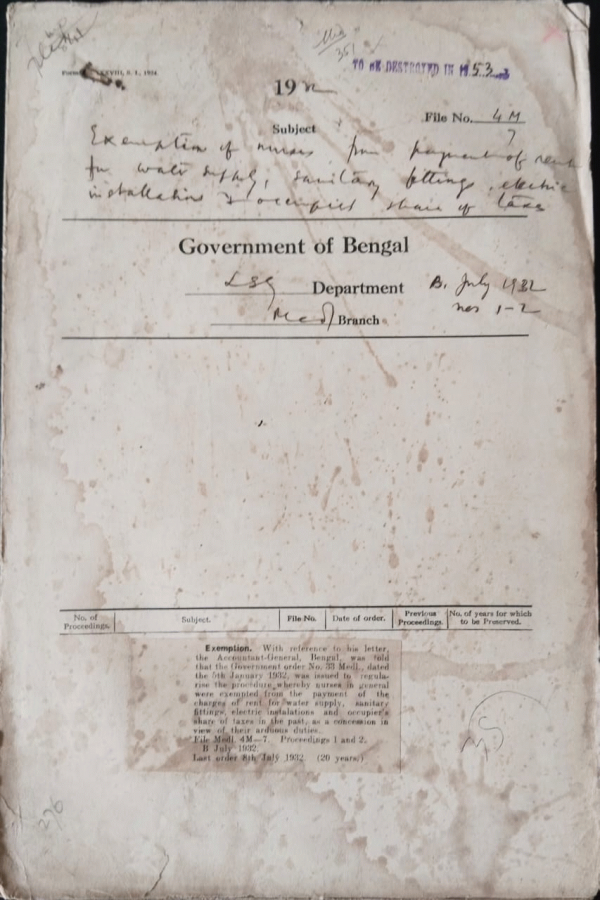 TO BE DESTROYED IN 1953
19
File No. 4M
7
Subject
Exemption of nurses from payment of rent
for water supply, sanitary fittings, electric
installations & occupier's share of taxes
Government of Bengal
LSG Department B. July 1932
Med Branch nos 1-2
No. of Proceedings. Subject. File No. Date of order. Previous Proceedings. No. of years for which to be Preserved.
Exemption. With reference to his letter,
the Accountant-General, Bengal, was told
that the Government order No. 33 Medl., dated
the 5th January 1932, was issued to regula-
rise the procedure whereby nurses in general
were exempted from the payment of the
charges of rent for water supply, sanitary
fittings, electric instalations and occupier's
share of taxes in the past, as a concession in
view of their arduous duties.
File Medl. 4M—7. Proceedings 1 and 2.
B July 1932.
Last order 8th July 1932 (20 years.)
276